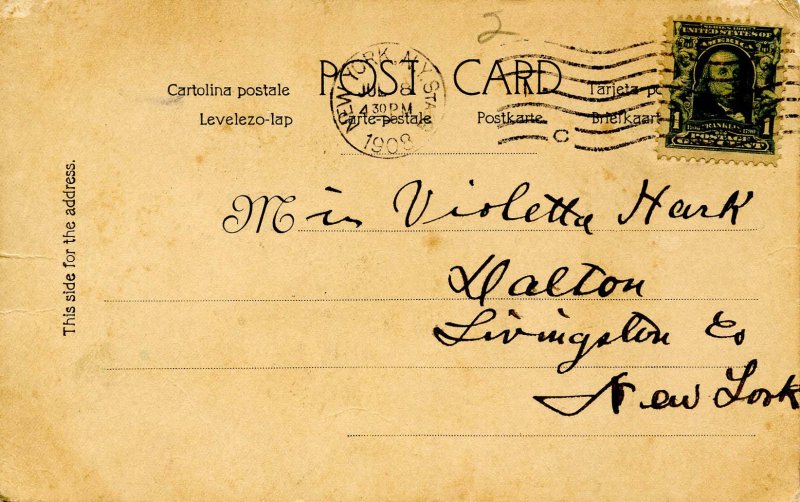 2
POST CARD
Cartolina postale
Levelezo-lap
Carte-postale
Postkarte
Briefkaart
NEW YORK, N.Y. STA
8
4 30 PM
1908
C
SERIES 1902
UNITED STATES OF
AMERICA
FRANKLIN
1 POSTAGE 1
This side for the address.
Miss Violetta Hark
Dalton
Livingston Co
New York